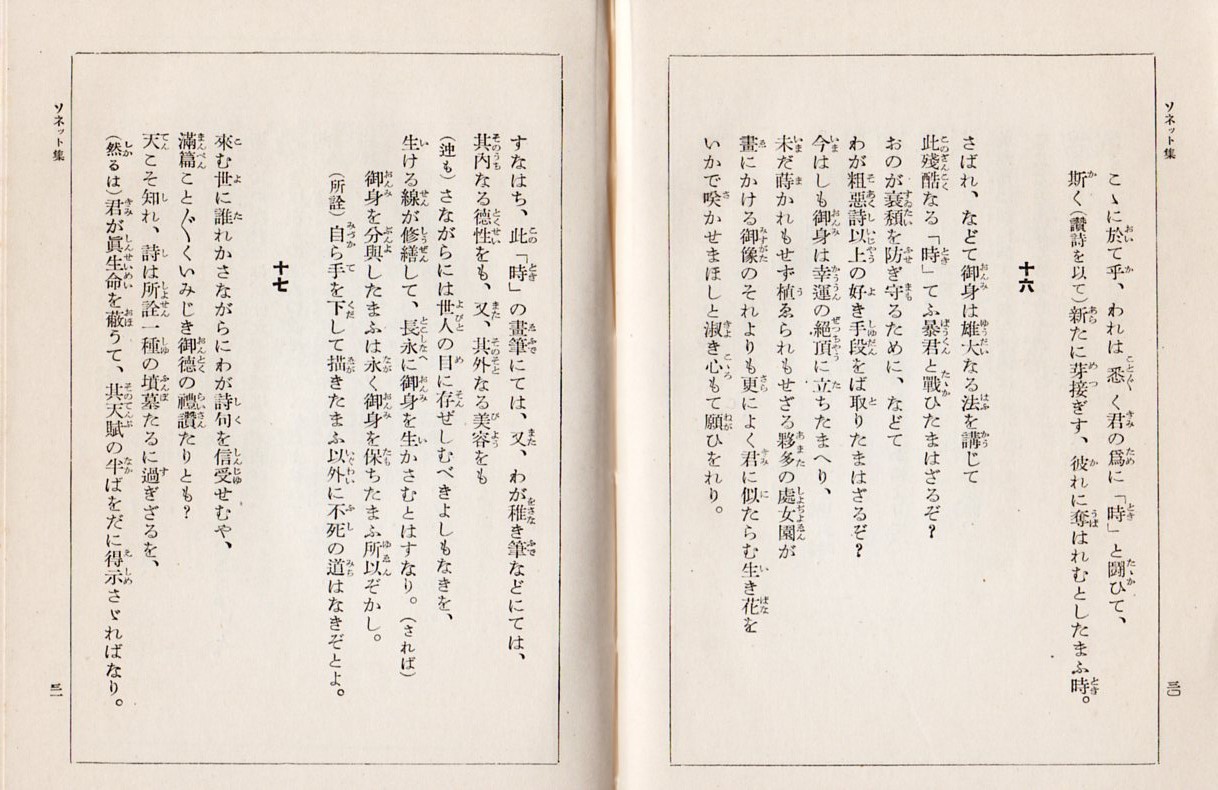 ソネット集
三〇
こゝに於て乎、われは悉く君の爲に「時」と鬪ひて、
斯く(讚詩を以て)新たに芽接ぎす、彼れに奪はれむとしたまふ時。
十六
さばれ、などて御身は雄大なる法を講じて
此殘酷なる「時」てふ暴君と戰ひたまはざるぞ?
おのが衰頽を防ぎ守るために、などて
わが粗惡詩以上の好き手段をば取りたまはざるぞ?
今はしも御身は幸運の絕頂に立ちたまへり、
未だ蒔かれもせず植ゑられもせざる夥多の處女園が
畫にかける御像のそれよりも更によく君に似たらむ生き花を
いかで咲かせまほしと淑き心もて願ひをれり。
すなはち、此「時」の畫筆にては、又、わが稚き筆などにては、
其內なる德性をも、又、其外なる美容をも
(迚も)さながらには世人の目に存ぜしむべきよしもなきを、
生ける線が修繕して、長永に御身を生かさむとはすなり。(されば)
御身を分與したまふは永く御身を保ちたまふ所以ぞかし。
(所詮)自ら手を下して描きたまふ以外に不死の道はなきぞとよ。
十七
來む世に誰れかさながらにわが詩句を信受せむや、
滿篇こと〴〵くいみじき御德の禮讚たりとも?
天こそ知れ、詩は所詮一種の墳墓たるに過ぎざるを、
(然るは)君が眞生命を蔽うて、其天賦の半ばをだに得示さゞればなり。
ソネット集
三一